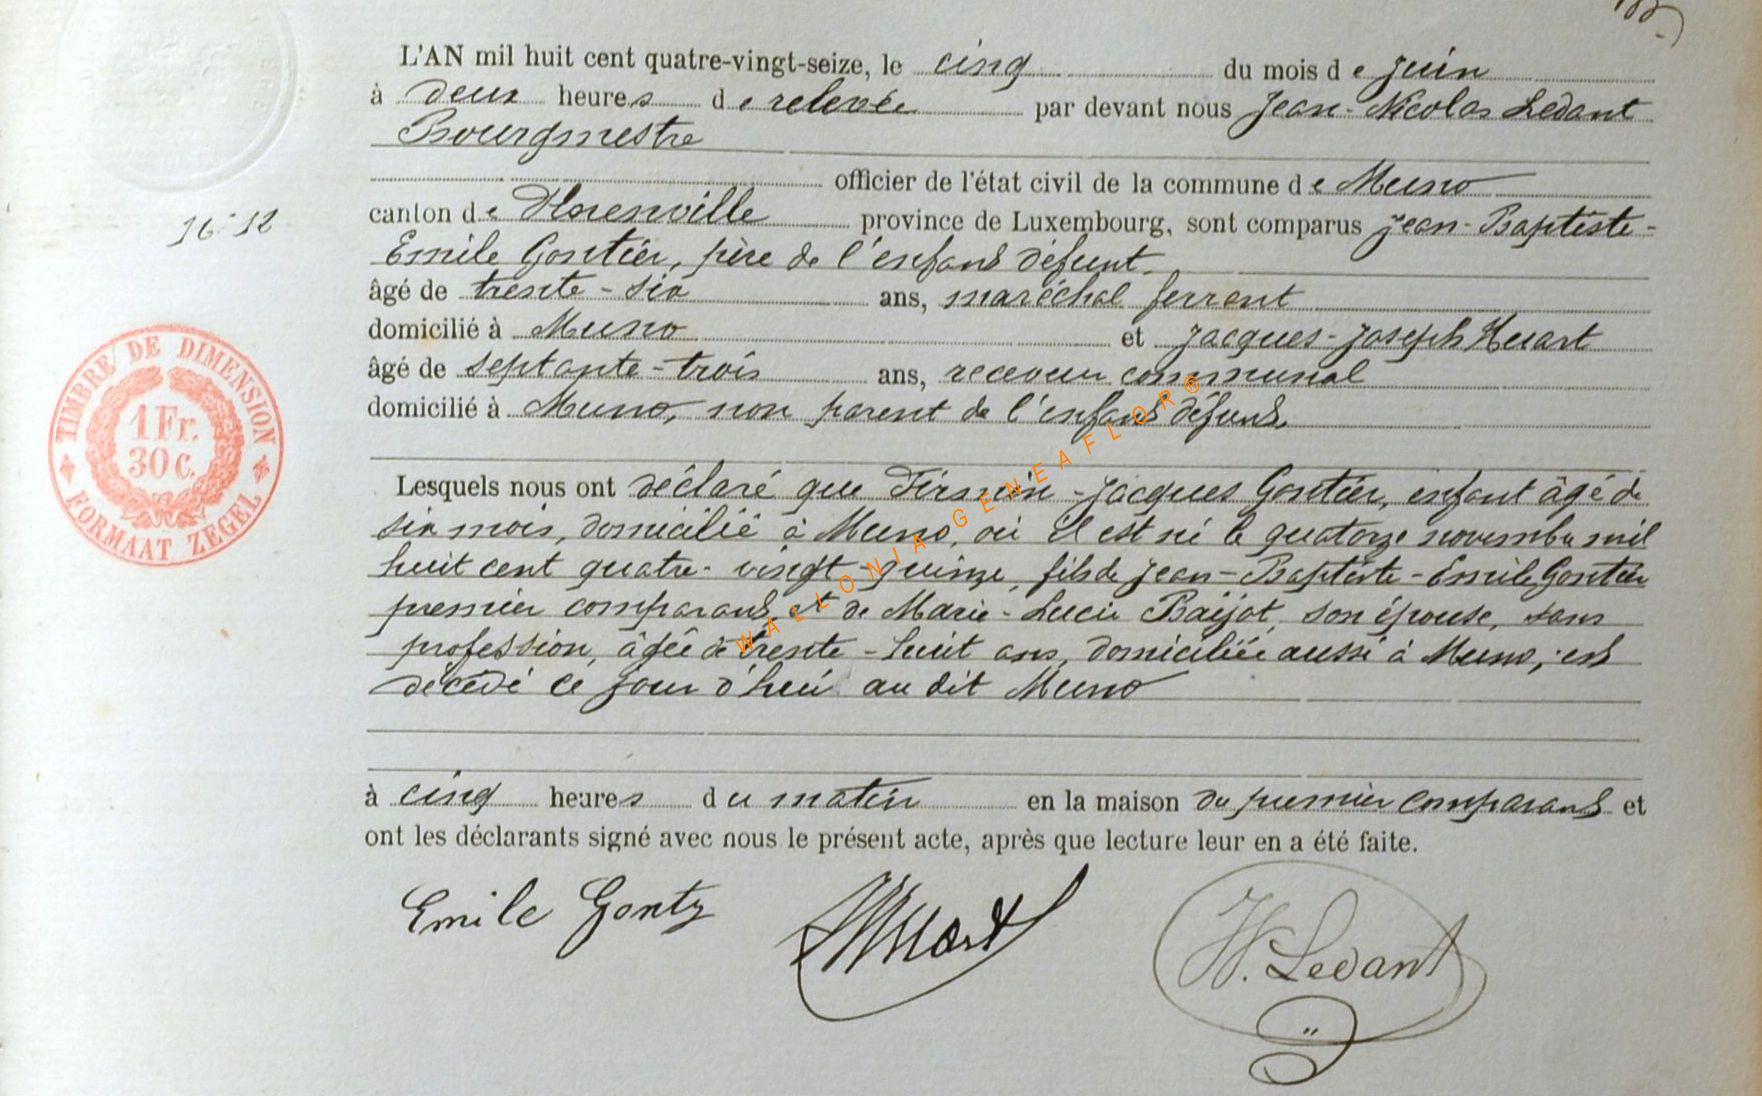 L'AN mil huit cent quatre-vingt-seize, le cinq du mois d e juin
à deux heures d e relevée par devant nous Jean-Nicolas Ledant
Bourgmestre
officier de l'état civil de la commune d e Muno
canton d e Florenville province de Luxembourg, sont comparus Jean-Baptiste-
Emile Gontier, père de l'enfant défunt
âgé de trente-six ans, maréchal ferrent
domicilié à Muno et Jacques-Joseph Huart
âgé de septante-trois ans, receveur communal
domicilié à Muno, non parent de l'enfant défunt,
Lesquels nous ont déclaré que Firmin-Jacques Gontier, enfant âgé de
six mois, domicilié à Muno, où il est né le quatorze novembre mil
huit cent quatre-vingt-quinze, fils de Jean-Baptiste-Emile Gontier
premier comparant et de Marie-Lucie Baijot, son épouse, sans
profession, âgée de trente-huit ans, domiciliée aussi à Muno, est
décédé ce jour d'hui au dit Muno
à cinq heures du matin en la maison du premier comparant et
ont les déclarants signé avec nous le présent acte, après que lecture leur en a été faite.
Emile Gonty
Huart
Ledant
16-12
TIMBRE DE DIMENSION
1 Fr.
30 C.
FORMAAT ZEGEL
WALLONIA GENEAFLOR®